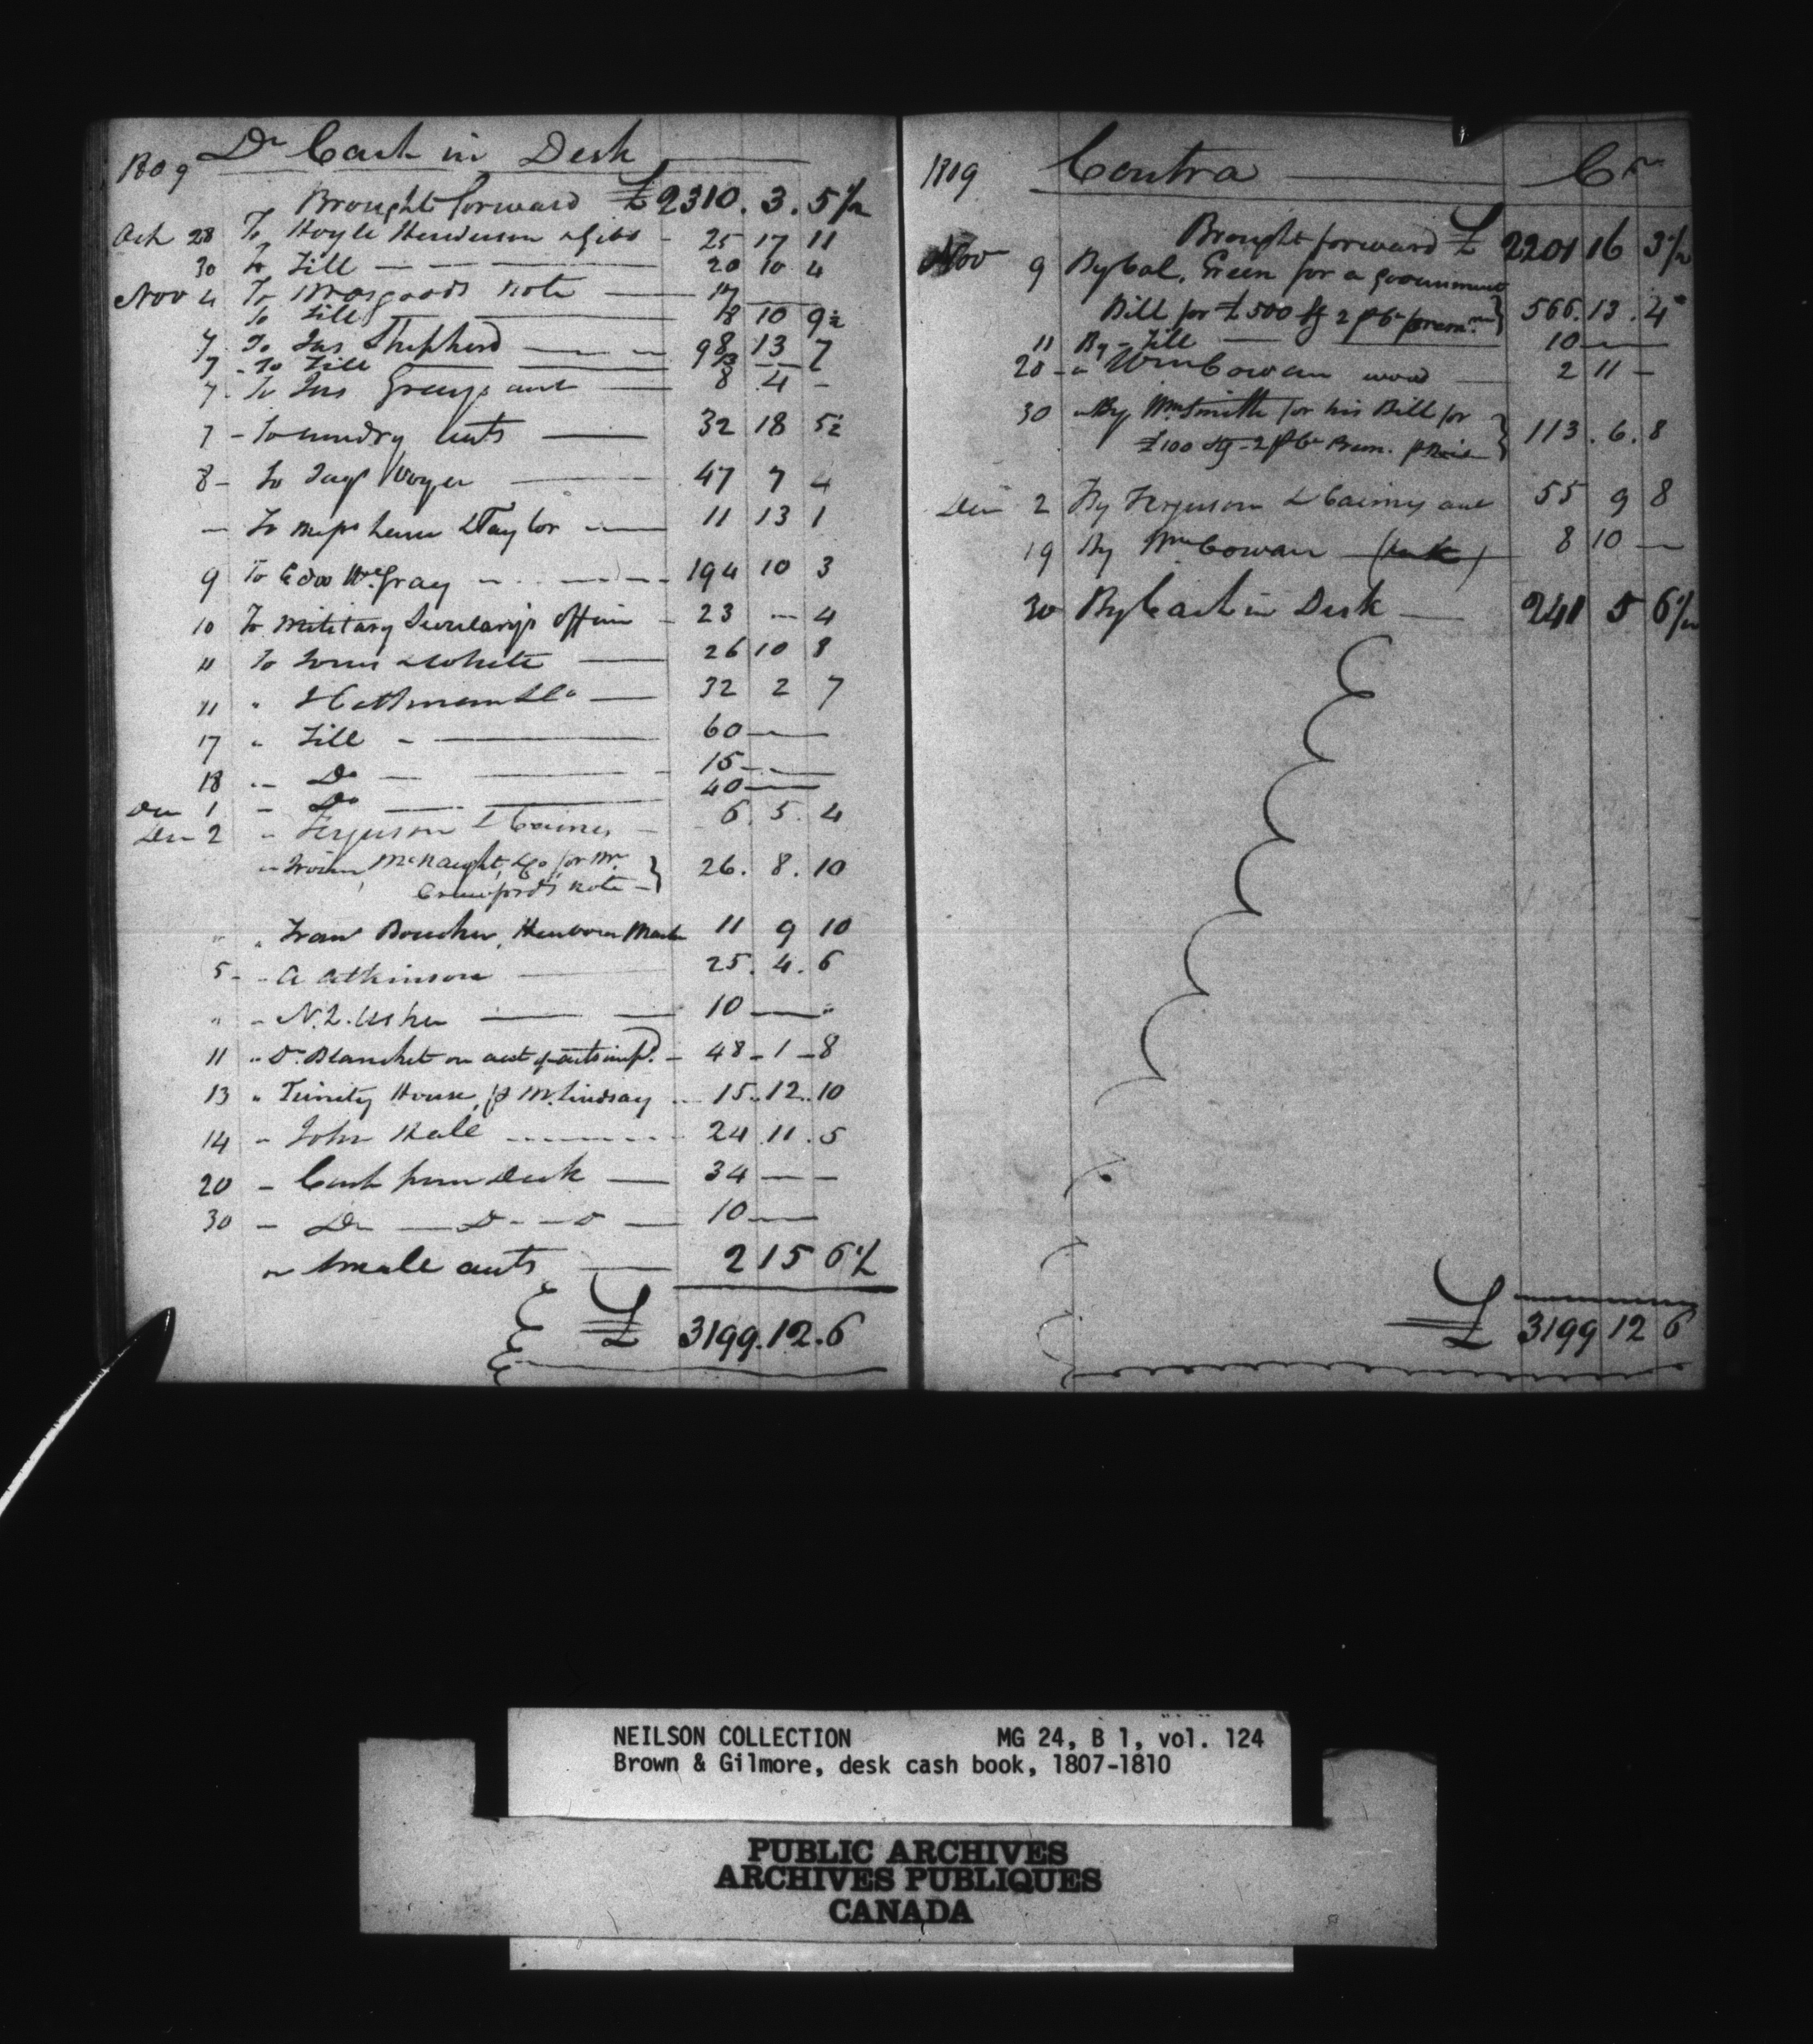 1809 Dr Cash in Desk
Brought forward £2310. 3. 5 1/2
Oct 28 To Hoyle Henderson & Gibb - 25 17 11
30 To Till 20 10 4
Nov 4 To note
To Till 18 10 9 1/2
7 To Jas Shepherd 98 13 7
7 - To Till
7 - To Jas Grays acct 8 4 -
7 - To sundry accts 32 18 5 1/2
8 - To Jaqs Voyer 47 7 4
- To Messrs & Taylor 11 13 1
9 To Edw Wm Gray 194 10 3
10 To Military Secretarys Office - 23 - 4
11 To & White 26 10 8
11 " & Co 32 2 7
17 " Till - 60
18 " Do 15
Dec 1 - Do 40
Dec 2 " Ferguson & Cairns 6. 5. 4
" Irvine, McNaught, & Co, for Mr
Crawford's note 26. 8. 10
" " Frans Boucher, 11 9 10
5 - " A Atkinson 25. 4. 6
" - N. L. Usher 10
11 " Dr. Blanchet on acct 48 - 1 - 8
13 " Trinity House, p M. Lindsay 15. 12. 10
14 " John Hall 24. 11. 5
20 - Cash from Desk 34
30 - Do D o 10
small accts 2 15 6 1/2
£ 3199. 12. 6
1809 Contra Cr
Brought forward £ 2201 16 3 1/2
Nov 9 By Col. Green for a government
Bill for £500 Stg 2 p Ct prem. 566. 13. 4
11 By - Till 10
20 - " Wm Cowan wood 2 11 -
30 " By Wm Smith for his Bill for
£100 Stg - 2 p Ct Prem. 113. 6. 8
Dec 2 By Ferguson & Cairns acct 55 9 8
19 By Wm Cowan 8 10
30 By Cash in Desk 241 5 6 1/2
£ 3199 12 6
NEILSON COLLECTION MG 24, B 1, vol. 124
Brown & Gilmore, desk cash book, 1807-1810
PUBLIC ARCHIVES
ARCHIVES PUBLIQUES
CANADA